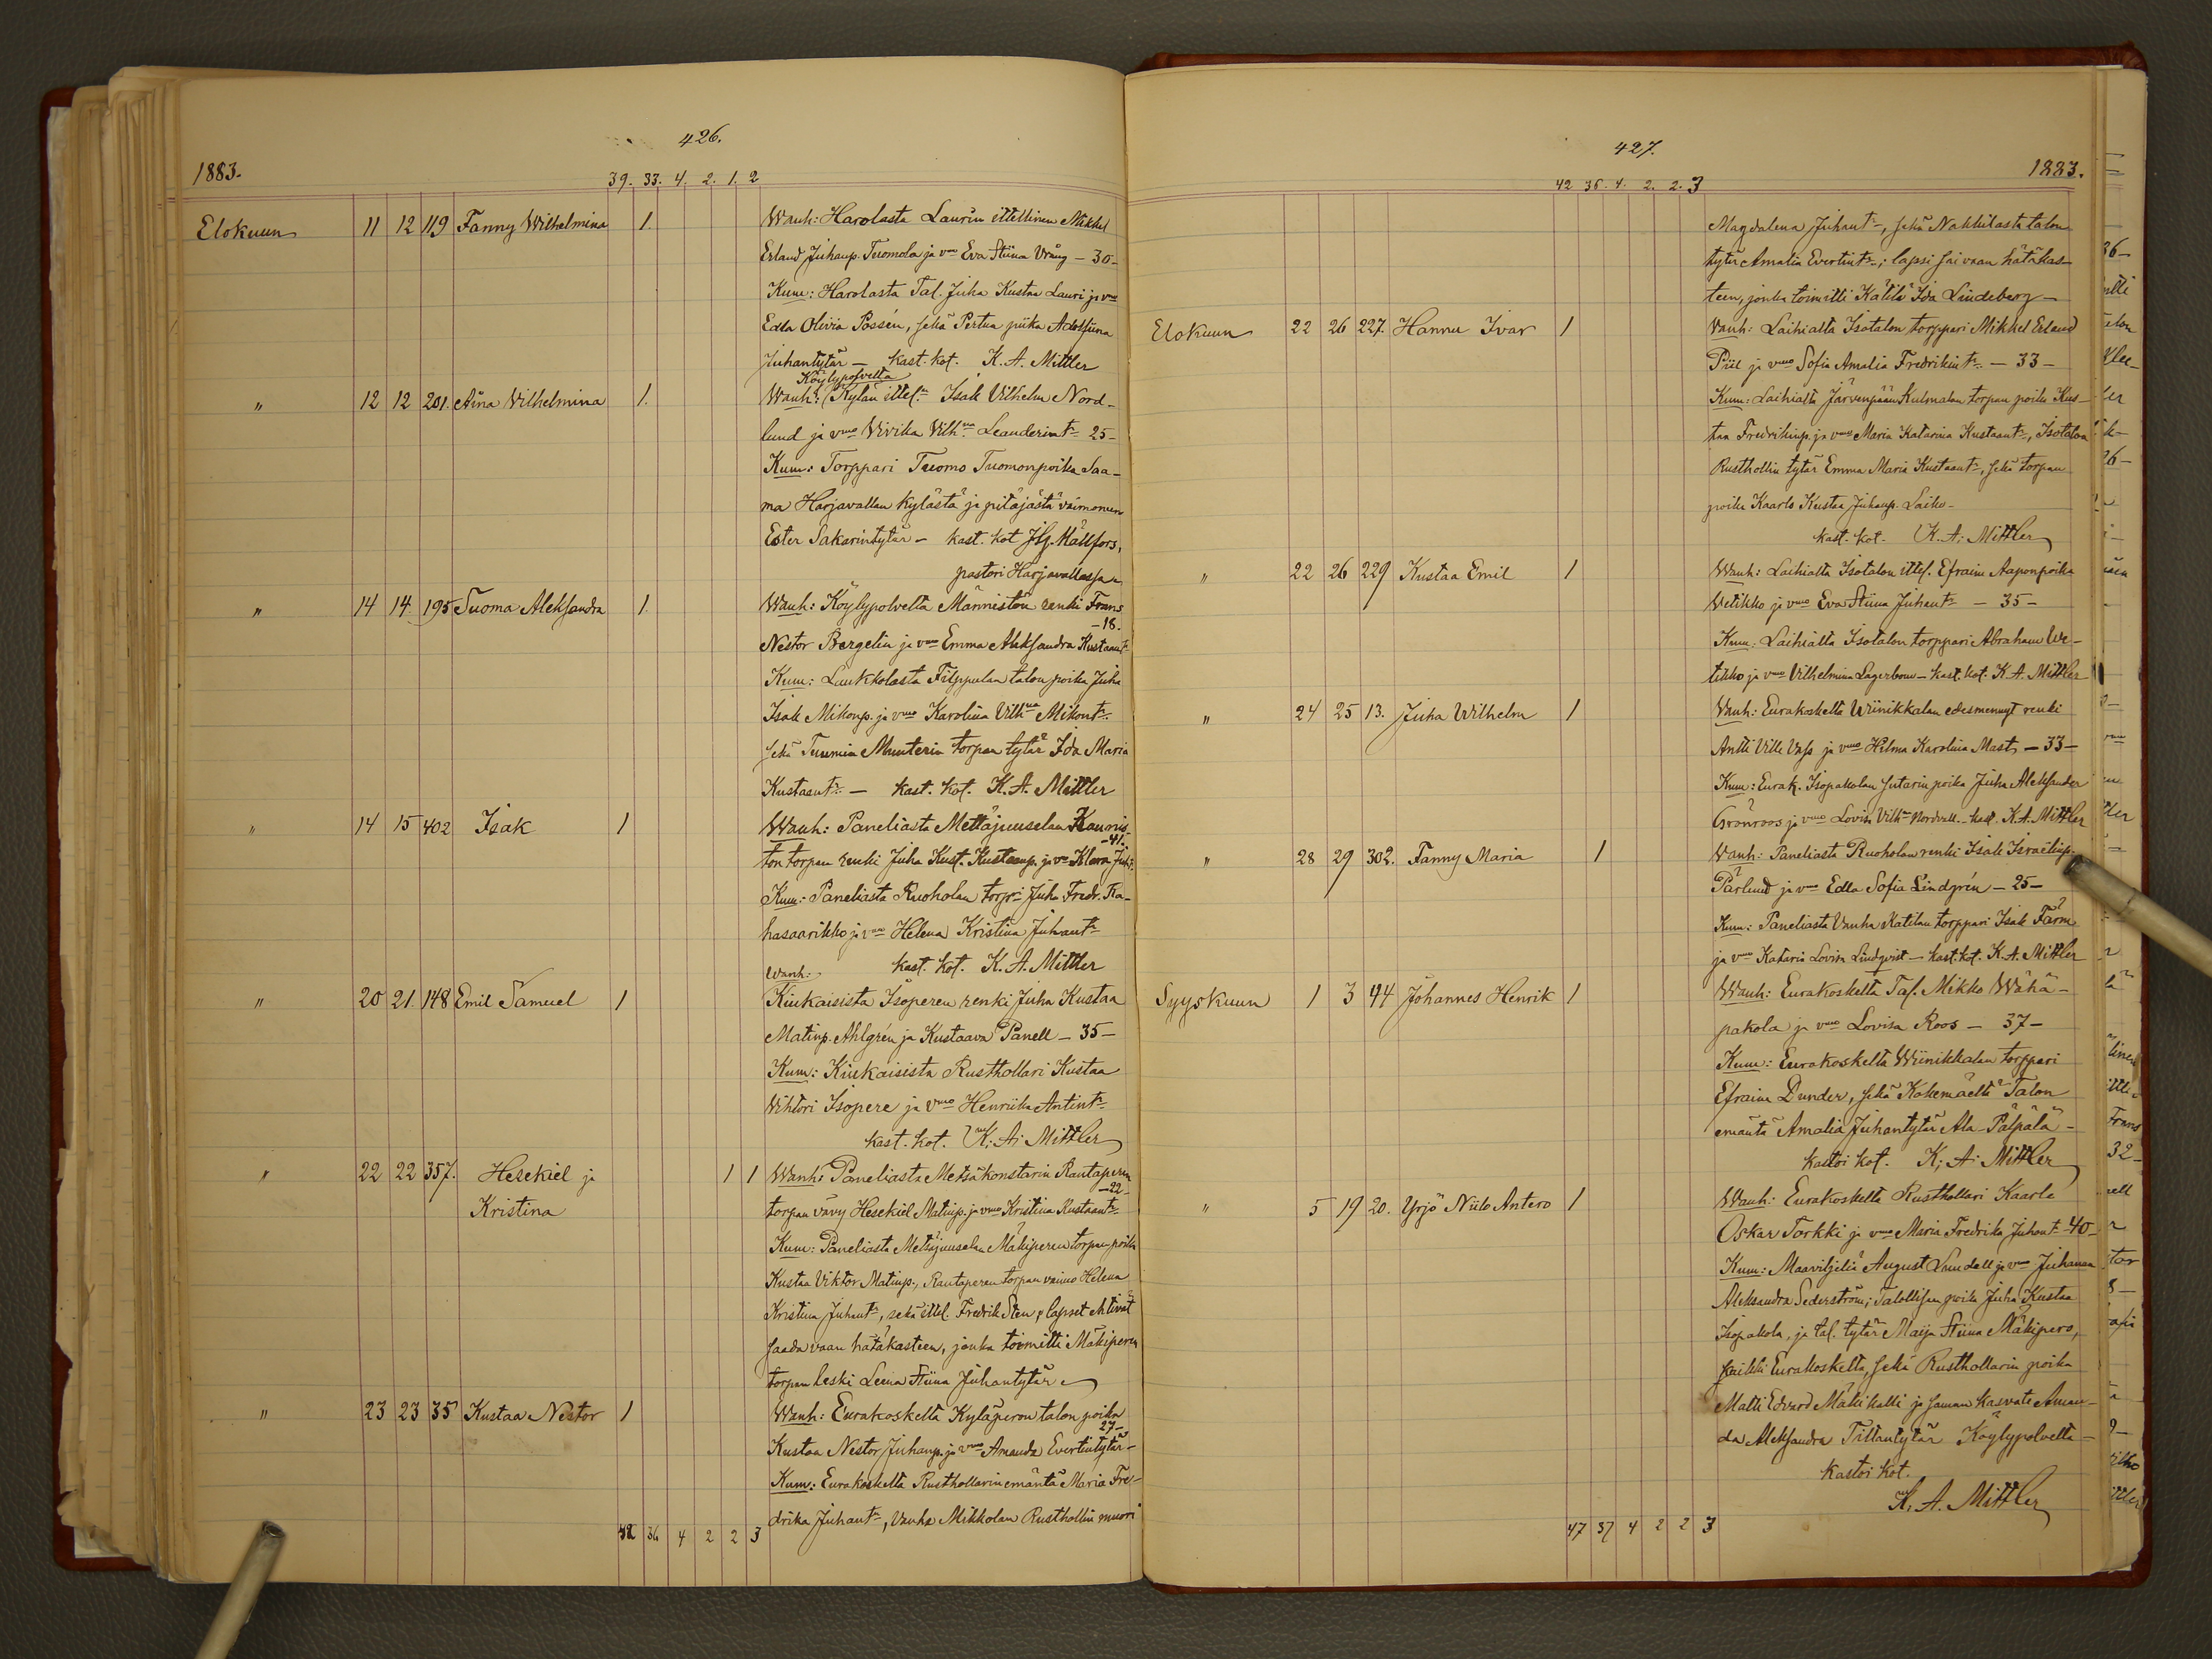 426.
1883.
39. 33. 4. 2. 1. 2
Elokuun 11 12 119 Fanny Wilhelmina 1. Wanh: Harolasta Laurin ittellinen Mikkel
Erland Juhanp. Tuomola ja vmo Eva Stiina Vräng – 30 –
Kum: Harolasta Tal. Juha Kustaa Lauri ja vmo
Edla Olivia Possén, sekä Pertun piika Adolfiina
Juhantytär – kast. kot. K. A. Mittler
Köylypolvelta
" 12 12 201. Aina Vilhelmina 1. Wanh: Kylän ittel:n Isak Vilhelm Nord-
lund ja vmo Vivika Vilh:na Leanderint:r 25 –
Kum: Torppari Tuomo Tuomonpoika Saa-
ma Harjavallan kylästä ja pitäjästä vaimoneen
Ester Sakarintytär – kast. kot Hällfors,
pastori Harjavallassa
" 14 14 195 Suoma Aleksandra 1. Wanh: Köylypolvelta Männistön renki Frans
– 18.
Nestor Bergelin ja vmo Emma Aleksandra Kustaant:r
Kum: Laukkolasta Filppulan talon poika Juha
Isak Mikonp. ja vmo Karolina Vilh:na Mikont:r
sekä Tuomin Munterin torpan tytär Ida Maria
Kustaant:r – kast. kot. K. A. Mittler
" 14 15 402 Isak 1 Wanh: Paneliasta Mettäjuuselan Kaunis-
– 41.
ton torpan renki Juha Kust. Kustaap. ja vmo Klara Juh:
Kum: Paneliasta Ruoholan torp:ri Juha Fredr. Ka-
hasaarikko ja vmo Helena Kristina Juhant:r
kast. kot. K. A. Mittler
Wanh:
" 20 21. 148 Emil Samuel 1 Kiukaisista Isoperen renki Juha Kustaa
Matinp. Ahlgrén ja Kustaava Panell – 35 –
Kum: Kiukaisista Rusthollari Kustaa
Vihtori Isopere ja vmo Henriika Antint:r
kast. kot. K. A. Mittler
" 22 22 357. Hesekiel ja 1 1 Wanh: Paneliasta Metsäkonstarin Rautaperen
– 22 –
Kristina torpan vävy Hesekiel Matinp. ja vmo Kristina Kustaant:r
Kum: Paneliasta Metsäjuuselan Mäkiperen torpan poika
Kustaa Viktor Matinp., Rautaperen torpan vaimo Helena
Kristina Juhant:r, sekä ittel. Fredrik Sten, lapset ehtivät
saada vaan hätäkasteen, jonka toimitti Mäkiperen
torpan leski Leena Stiina Juhantytär
" 23 23 35 Kustaa Nestor 1 Wanh: Eurakoskelta Kyläperon talon poika
27 –
Kustaa Nestor Juhanp. ja vmo Amanda Evertintytär –
Kum: Eurakoskelta Rusthollarin emäntä Maria Fre-
drika Juhant:r, Vanha Mikkolan Rusthollin muori
42 36 4 2 2 3
427.
1883.
42 36. 4. 2. 2. 3
Magdalena Juhant:r, sekä Nakkilasta talon
tytär Amalia Evertint:r; lapsi sai vaan hätäkas-
teen, jonka toimitti Kätilö Ida Lindeberg –
Elokuun 22 26 227. Hannu Ivar 1 Vanh: Laihialta Isotalon torppari Mikkel Erland
Piil ja vmo Sofia Amalia Fredrikint:r – 33 –
Kum: Laihialta Järvenpään Kulmalan torpan poika Kus-
taa Fredrikinp. ja vmo Maria Katarina Kustaant:r, Isotalon
Rusthollin tytär Emma Maria Kustaant:r, sekä torpan
poika Kaarlo Kustaa Juhanp. Laiho –
kast. kot. K. A. Mittler
" 22 26 229 Kustaa Emil 1 Wanh: Laihialta Isotalon ittel. Efraim Aaponpoika
Wetikko ja vmo Eva Stiina Juhant:r – 35 –
Kum: Laihialta Isotalon torppari Abraham We-
tikko ja vmo Vilhelmina Lagerbom – kast. kot. K. A. Mittler
" 24 25 13. Juha Wilhelm 1 Vanh: Eurakoskelta Wiinikkalan edesmennyt renki
Antti Ville Vass ja vmo Hilma Karolina Mast – 33 –
Kum: Eurak. Isopakolan sutarin poika Juha Aleksander
Grönroos ja vmo Lovisa Vilh:na Nordvall. – kast. K. A. Mittler
" 28 29 302. Fanny Maria 1 Wanh: Paneliasta Ruoholan renki Isak Israelinp.
Pärlund ja vmo Edla Sofia Lindgrén – 25 –
Kum: Paneliasta Vanha Katilan torppari Isak Färm
ja vmo Katarin Lovisa Lindqvist – kast. kot. K. A. Mittler
Syyskuun 1 3 44 Johannes Henrik 1 Wanh: Eurakoskelta Tal. Mikko Wähä-
pakola ja vmo Lovisa Roos – 37 –
Kum: Eurakoskelta Wiinikkalan torppari
Efraim Dunder, sekä Kokemäeltä Talon
emäntä Amalia Juhantytär Ala-Pälpälä –
kastoi kot. K. A. Mittler
" 5 19 20. Yrjö Niilo Antero 1 Wanh: Eurakoskelta Rusthollari Kaarle
Oskar Torkki ja vmo Maria Fredrika Juhant:r 40 –
Kum: Maaviljeliä August Lundell ja vmo Juhanna
Aleksandra Sederström; Talollisen poika Juha Kustaa
Isopakola, ja tal. tytär Maija Stiina Mäkipero,
kaikki Eurakoskelta, sekä Rusthollarin poika
Matti Edvard Mälkikalli ja saman kasvate Aman-
da Aleksandra Tittantytär Köylypolvelta –
kastoi kot.
K. A. Mittler
47 37 4 2 2 3